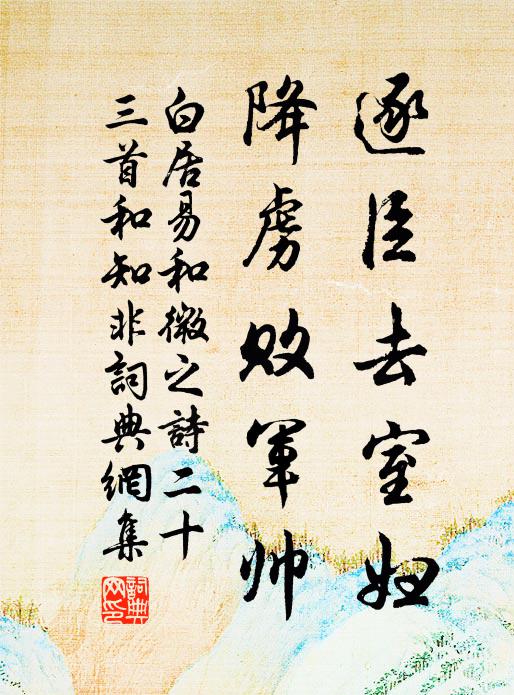 逐臣去室妇
降虏败军帅
白居易和微之詩二十
三首和知非詞典網集
詞典網印